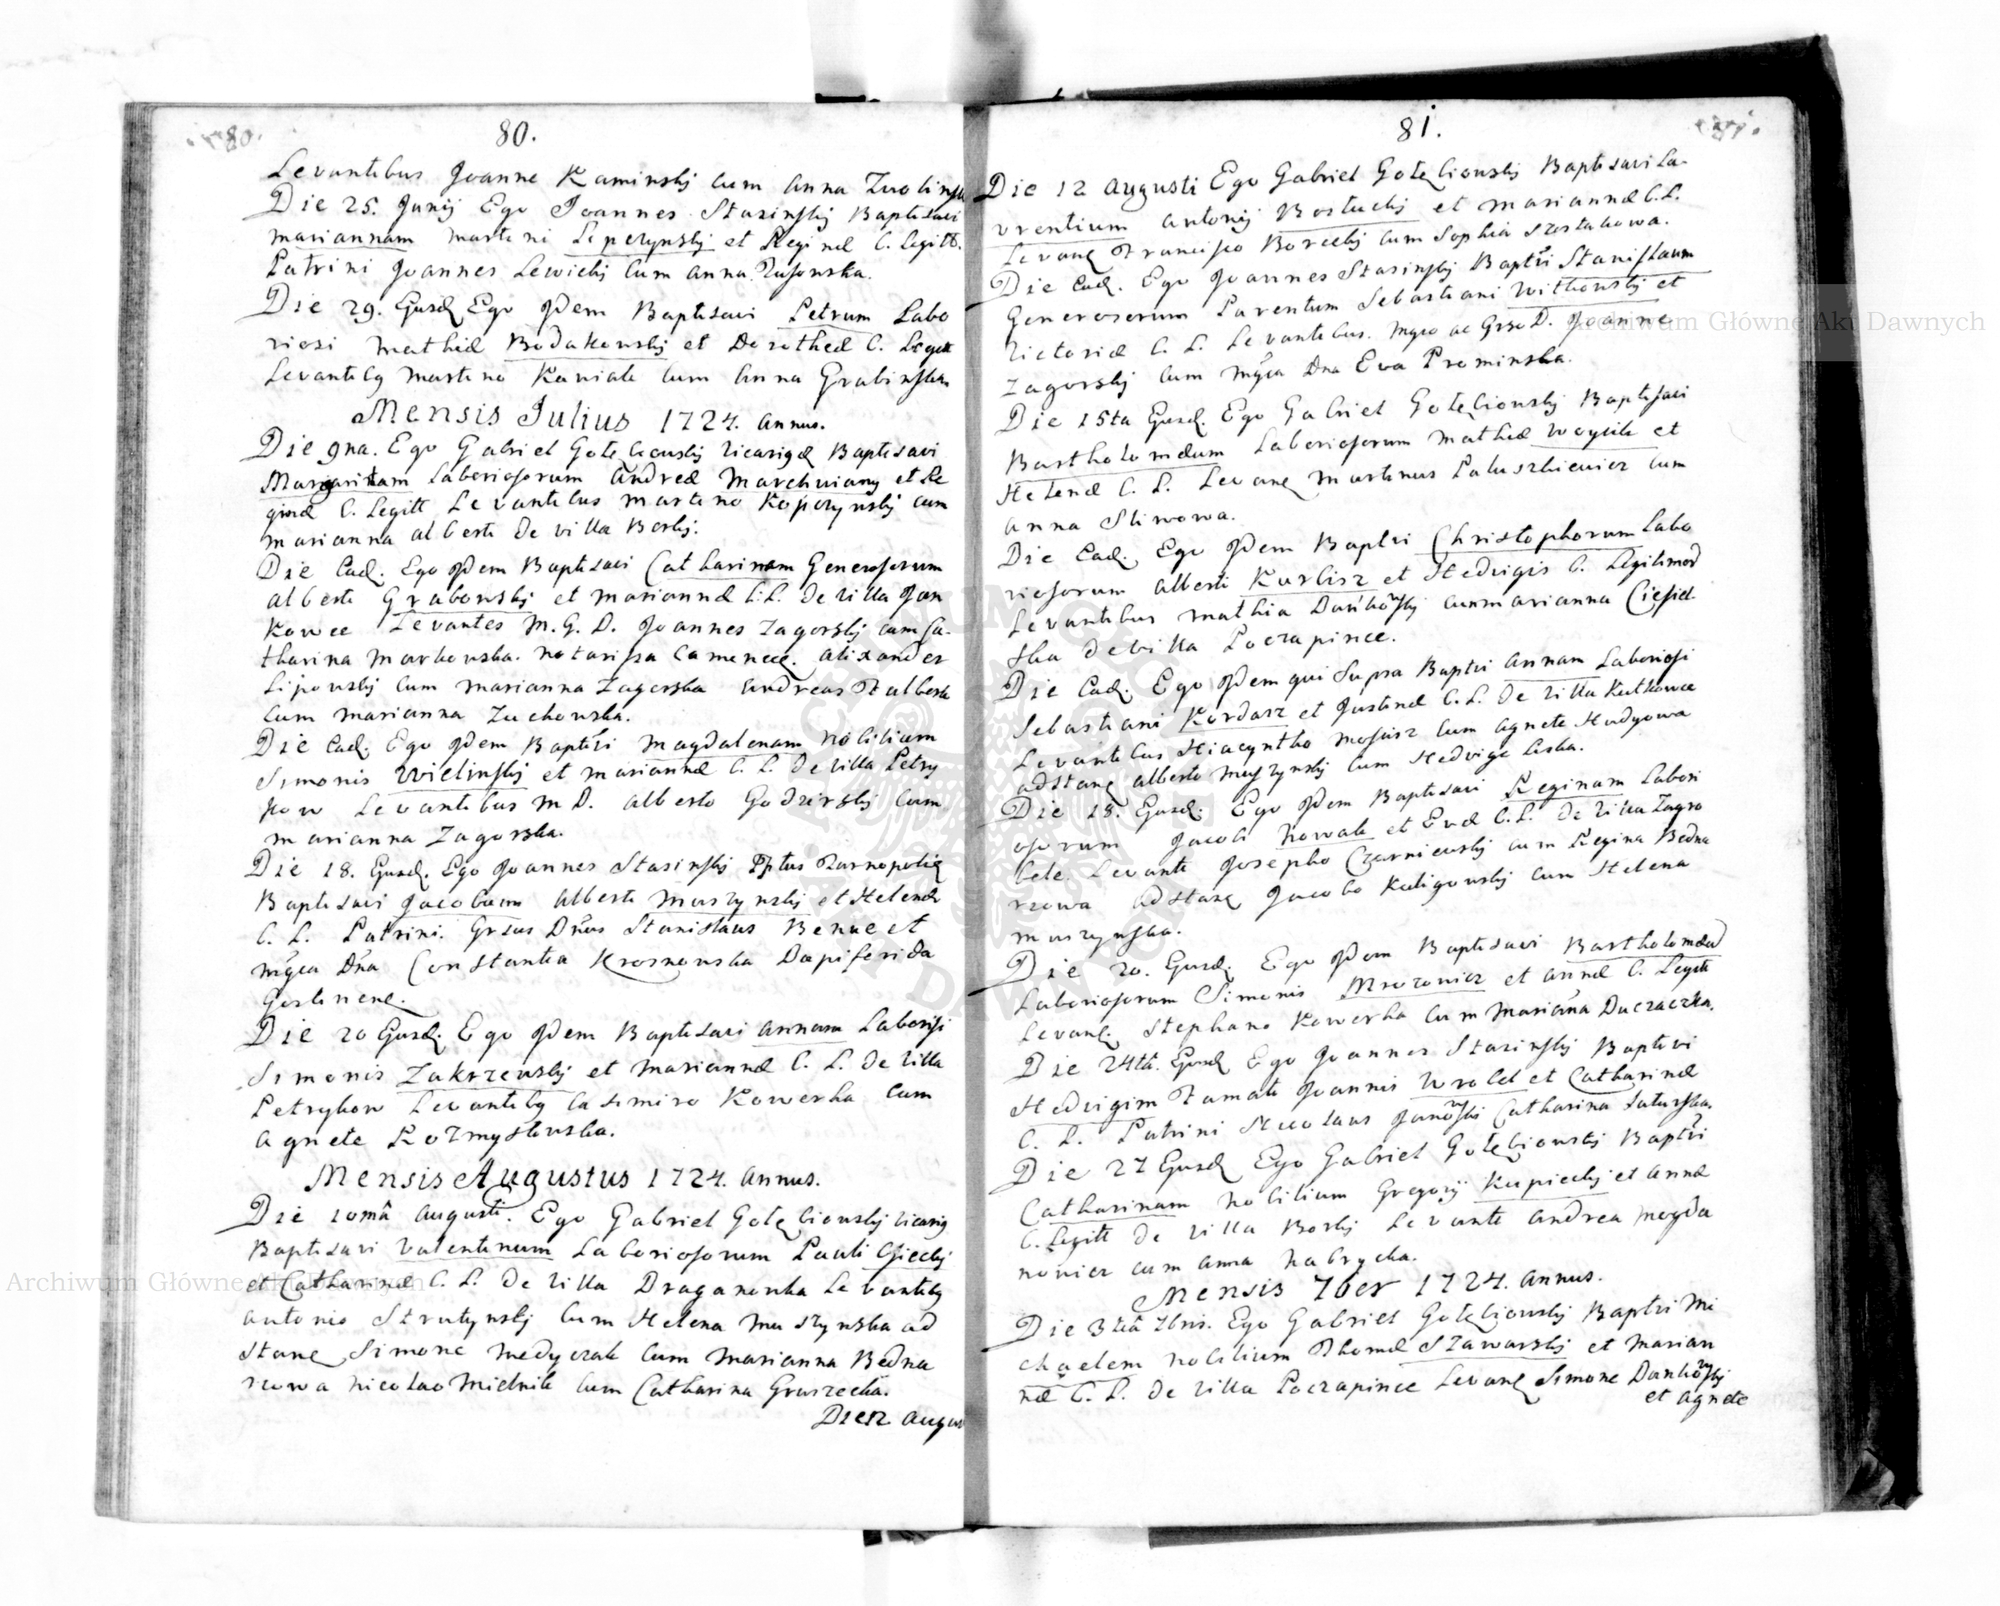 80.
Levantibus Joanne Kaminskij cum Anna
Die 25. Junij Ego Joannes Stasinskij Baptisavi
Mariannam Martini Lepczynskij et Reginæ C. Legitt.
Patrini Joannes Lewickj cum Anna
Die 29. Ejusd Ego Jdem Baptisavi Petrum Labo
riosi Mathiæ Bodakowskj et Dorotheæ C. Legitt
Levantibq Martino Kaniak cum Anna Grabinska
Mensis Julius 1724. Annus.
Die 9na. Ego Gabriel Gołębiowskj Baptisavi
Margaritam Laboriosorum Andreæ Marchwiany et Re
ginæ C. Legitt Levantibus Martino Kopczynskj cum
Marianna Alberti de villa Borkj.
Die Ead. Ego Jdem Baptisavi Catharinam Generosorum
Alberti Grabowskj et Mariannæ C. L. De Villa Jan
kowce Levantes M. G. D. Joannes Zagorskj cum Ca-
tharina Markowska. Notarissa Camenec. Alexander
Lipowskj cum Marianna Zagorska Andreas
cum Marianna Zuchowska.
Die Ead. Ego Jdem Bapti̅vi Magdalenam Nobilium
Simonis Wielinskj et Mariannæ C. L. De Villa Petry
kow Levantibus M D. Alberto Godzirskj cum
Marianna Zagorska.
Die 18. Ejusd. Ego Joannes Stasinskj Pptus Tarnopoliɇ
Baptisavi Jacobum Alberti Muszynskj et Helenæ
C. L. Patrini. Grsus Dn̅us Stanislaus Benue et
Mg̅ca Dn̅a Constantia Krosnowska Dapiferida
Gostinenɇ.
Die 20 Ejusd. Ego Jdem Baptisavi Annam Laboriosi
Simonis Zakrzewskj et Mariannæ C. L. De Villa
Petrykow Levantibq Casimiro Kowerka cum
Agnete Rozmysłowska.
Mensis Augustus 1724. Annus.
Die 10ma̅ Augusti. Ego Gabriel Gołębiowskj
Baptisavi Valentinum Laboriosorum Pauli Osieckj
et Catharinæ C. L. De Villa Draganowka Levantibq
Antonio Strutynskj cum Helena Muszynska ad
stanɇ Simone Medyczak cum Marianna Bedna
rzowa Nicolao Mielnik cum Catharina Gruszecka.
Die 12. Augus
81.
Die 12 Augusti Ego Gabriel Gołębiowskj Baptisavi La-
vrentium Antonij Rostuckj et Mariannæ C. L.
Levanɇ Francisco Boreckj cum Sophia Szostakowa.
Die Ead. Ego Joannes Stasinskj Bapti̅ Stanislaum
Generosorum Parentum Sebastiani Witkowskj et
Victoriæ C. L. Levantibus. Mgco ac Grso D. Joanne
Zagorskj cum Mg̅ca Dna Eva Prominska.
Die 15ta Ejusd. Ego Gabriel Gołębiowskj Baptisavi
Bartholomæum Laboriosorum Mathiæ Woycik et
Helenæ C. L. Levanɇ Martinus Paluszkiewicz cum
Anna Sliwowa.
Die Ead. Ego Jdem Baptvi Christophorum Labo
riosorum Alberti Kurbisz et Hedvigis C. Legitimor̅
Levantibus Mathia Dańkowskj cum Marianna Ciesiel-
ska de villa Poczapince.
Die Ead. Ego Jdem qui Supra Baptvi Annam Laboriosi
Sebastiani Kordasz et Justinæ C. L. De Villa Kutkowce
Levantibus Hiacyntho Mosiusz cum Agnete Hudyowa
adstanɇ Alberto Muszynskj cum Hedvige Liska.
Die 18. Ejusd. Ego Jdem Baptisavi Reginam Labori
osorum Jacobi Nowak et Evæ C. L. De Villa Zagro
bele. Levante Josepho Czarnieuskj cum Regina Bedna
rzowa adstanɇ Jacobo Kuligowskj cum Helena
Muszynska.
Die 20. Ejusd. Ego Jdem Baptisavi Bartholomæu̅
Laboriosorum Simonis Mrozowicz et Annæ C. Legitt
Levanɇ. Stephano Kowerka cum Marian̅a Duczaczka.
Die 24ta̅. Ejusd Ego Joannes Stasinskj Baptvi
Hedvigim Famati Joannis Wrobel et Catharinæ
C. L. Patrini Nicolaus Janowski Catharina
Die 27 Ejusd Ego Gabriel Gołębiowskj Bapt̅vi
Catharinam Nobilium Gregorij Kupieckj et Annæ
C. Legitt De Villa Borkj Levante Andrea Mogda
nowicz cum Anna Nabrycka.
Mensis 7ber 1724. Annus.
Die 3tia̅ 7bris. Ego Gabriel Gołębiowskj Baptvi Mi
chaelem Nobilium Thomæ Szawarskj et Marian
næ C. L. De Villa Poczapince Levanɇ Simone Dankowskj
et Agnete
Archiwum Główne Akt Dawnych
Archiwum Główne Akt Dawnych